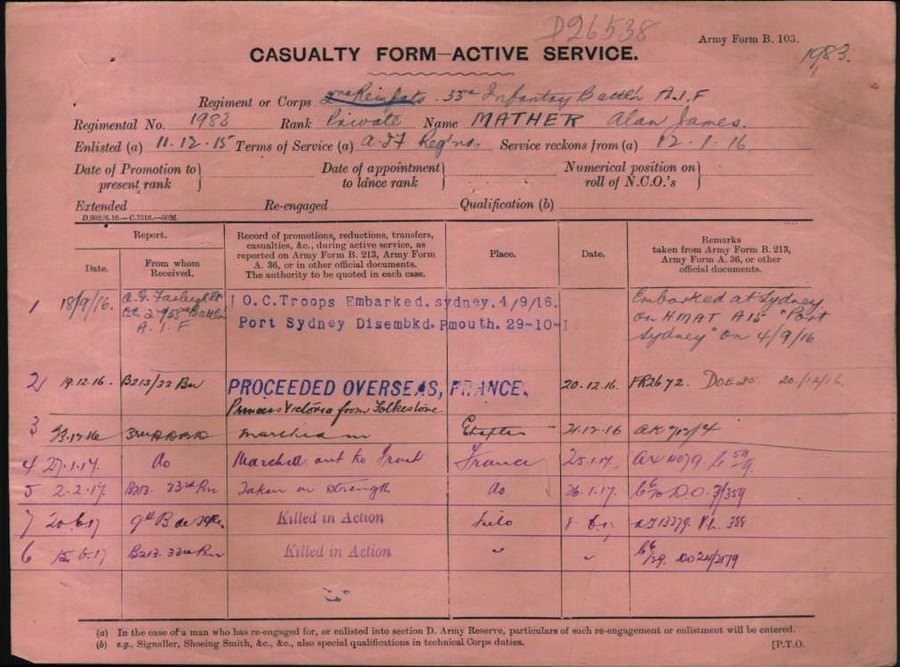 D26538
Army Form B. 103.
1983.
CASUALTY FORM—ACTIVE SERVICE.
Regiment or Corps 2nd Reinfts. 33rd Infantry Batt'n A.I.F
Regimental No. 1983 Rank Private Name MATHER Alan James.
Enlisted (a) 11.12.15 Terms of Service (a) A.I.F Reg'ns. Service reckons from (a) 12.1.16
Date of Promotion to present rank } Date of appointment to lance rank } Numerical position on roll of N.C.O.'s }
Extended Re-engaged Qualification (b)
D.902/6.16.—C.7516.—50M.
Report.
Date.
From whom Received.
Record of promotions, reductions, transfers,
casualties, &c., during active service, as
reported on Army Form B. 213, Army Form
A. 36, or in other official documents.
The authority to be quoted in each case.
Place.
Date.
Remarks
taken from Army Form B. 213,
Army Form A. 36, or other
official documents.
1 18/9/16. O.C. Troops Embarked. sydney. 4/9/16. Embarked at Sydney
A. I. F Port Sydney Disembkd. Pmouth. 29-10-1 on HMAT A15 "Port
Sydney" on 4/9/16
2 19.12.16. B213/33 Bn PROCEEDED OVERSEAS, FRANCE. 20.12.16.
Princess Victoria from Folkestone. 20/12/16
3 marched in Etaples 21.12.16
4 27.1.17. Do Marched out to Front France 25.1.17.
5 2.2.17. B213. 33rd Bn Taken on Strength do 26.1.17.
7 20.6.17 Killed in Action Field
6 B213. 33rd Bn Killed in Action " "
(a) In the case of a man who has re-engaged for, or enlisted into section D. Army Reserve, particulars of such re-engagement or enlistment will be entered.
(b) e.g., Signaller, Shoeing Smith, &c., &c., also special qualifications in technical Corps duties. [P.T.O.